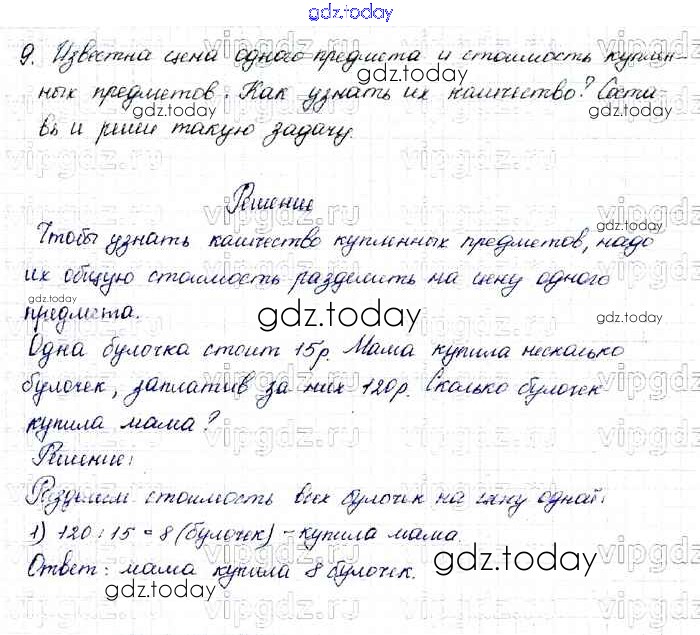 gdz.today
9. Известна цена одного предмета и стоимость куплен-
ных предметов. Как узнать их количество? Соста-
вь и реши такую задачу.
Решение
Чтобы узнать количество купленных предметов, надо
их общую стоимость разделить на цену одного
предмета.
Одна булочка стоит 15р. Мама купила несколько
булочек, заплатив за них 120р. Сколько булочек
купила мама?
Решение:
Разделим стоимость всех булочек на цену одной:
1) 120 : 15 = 8 (булочек) - купила мама.
Ответ: мама купила 8 булочек.